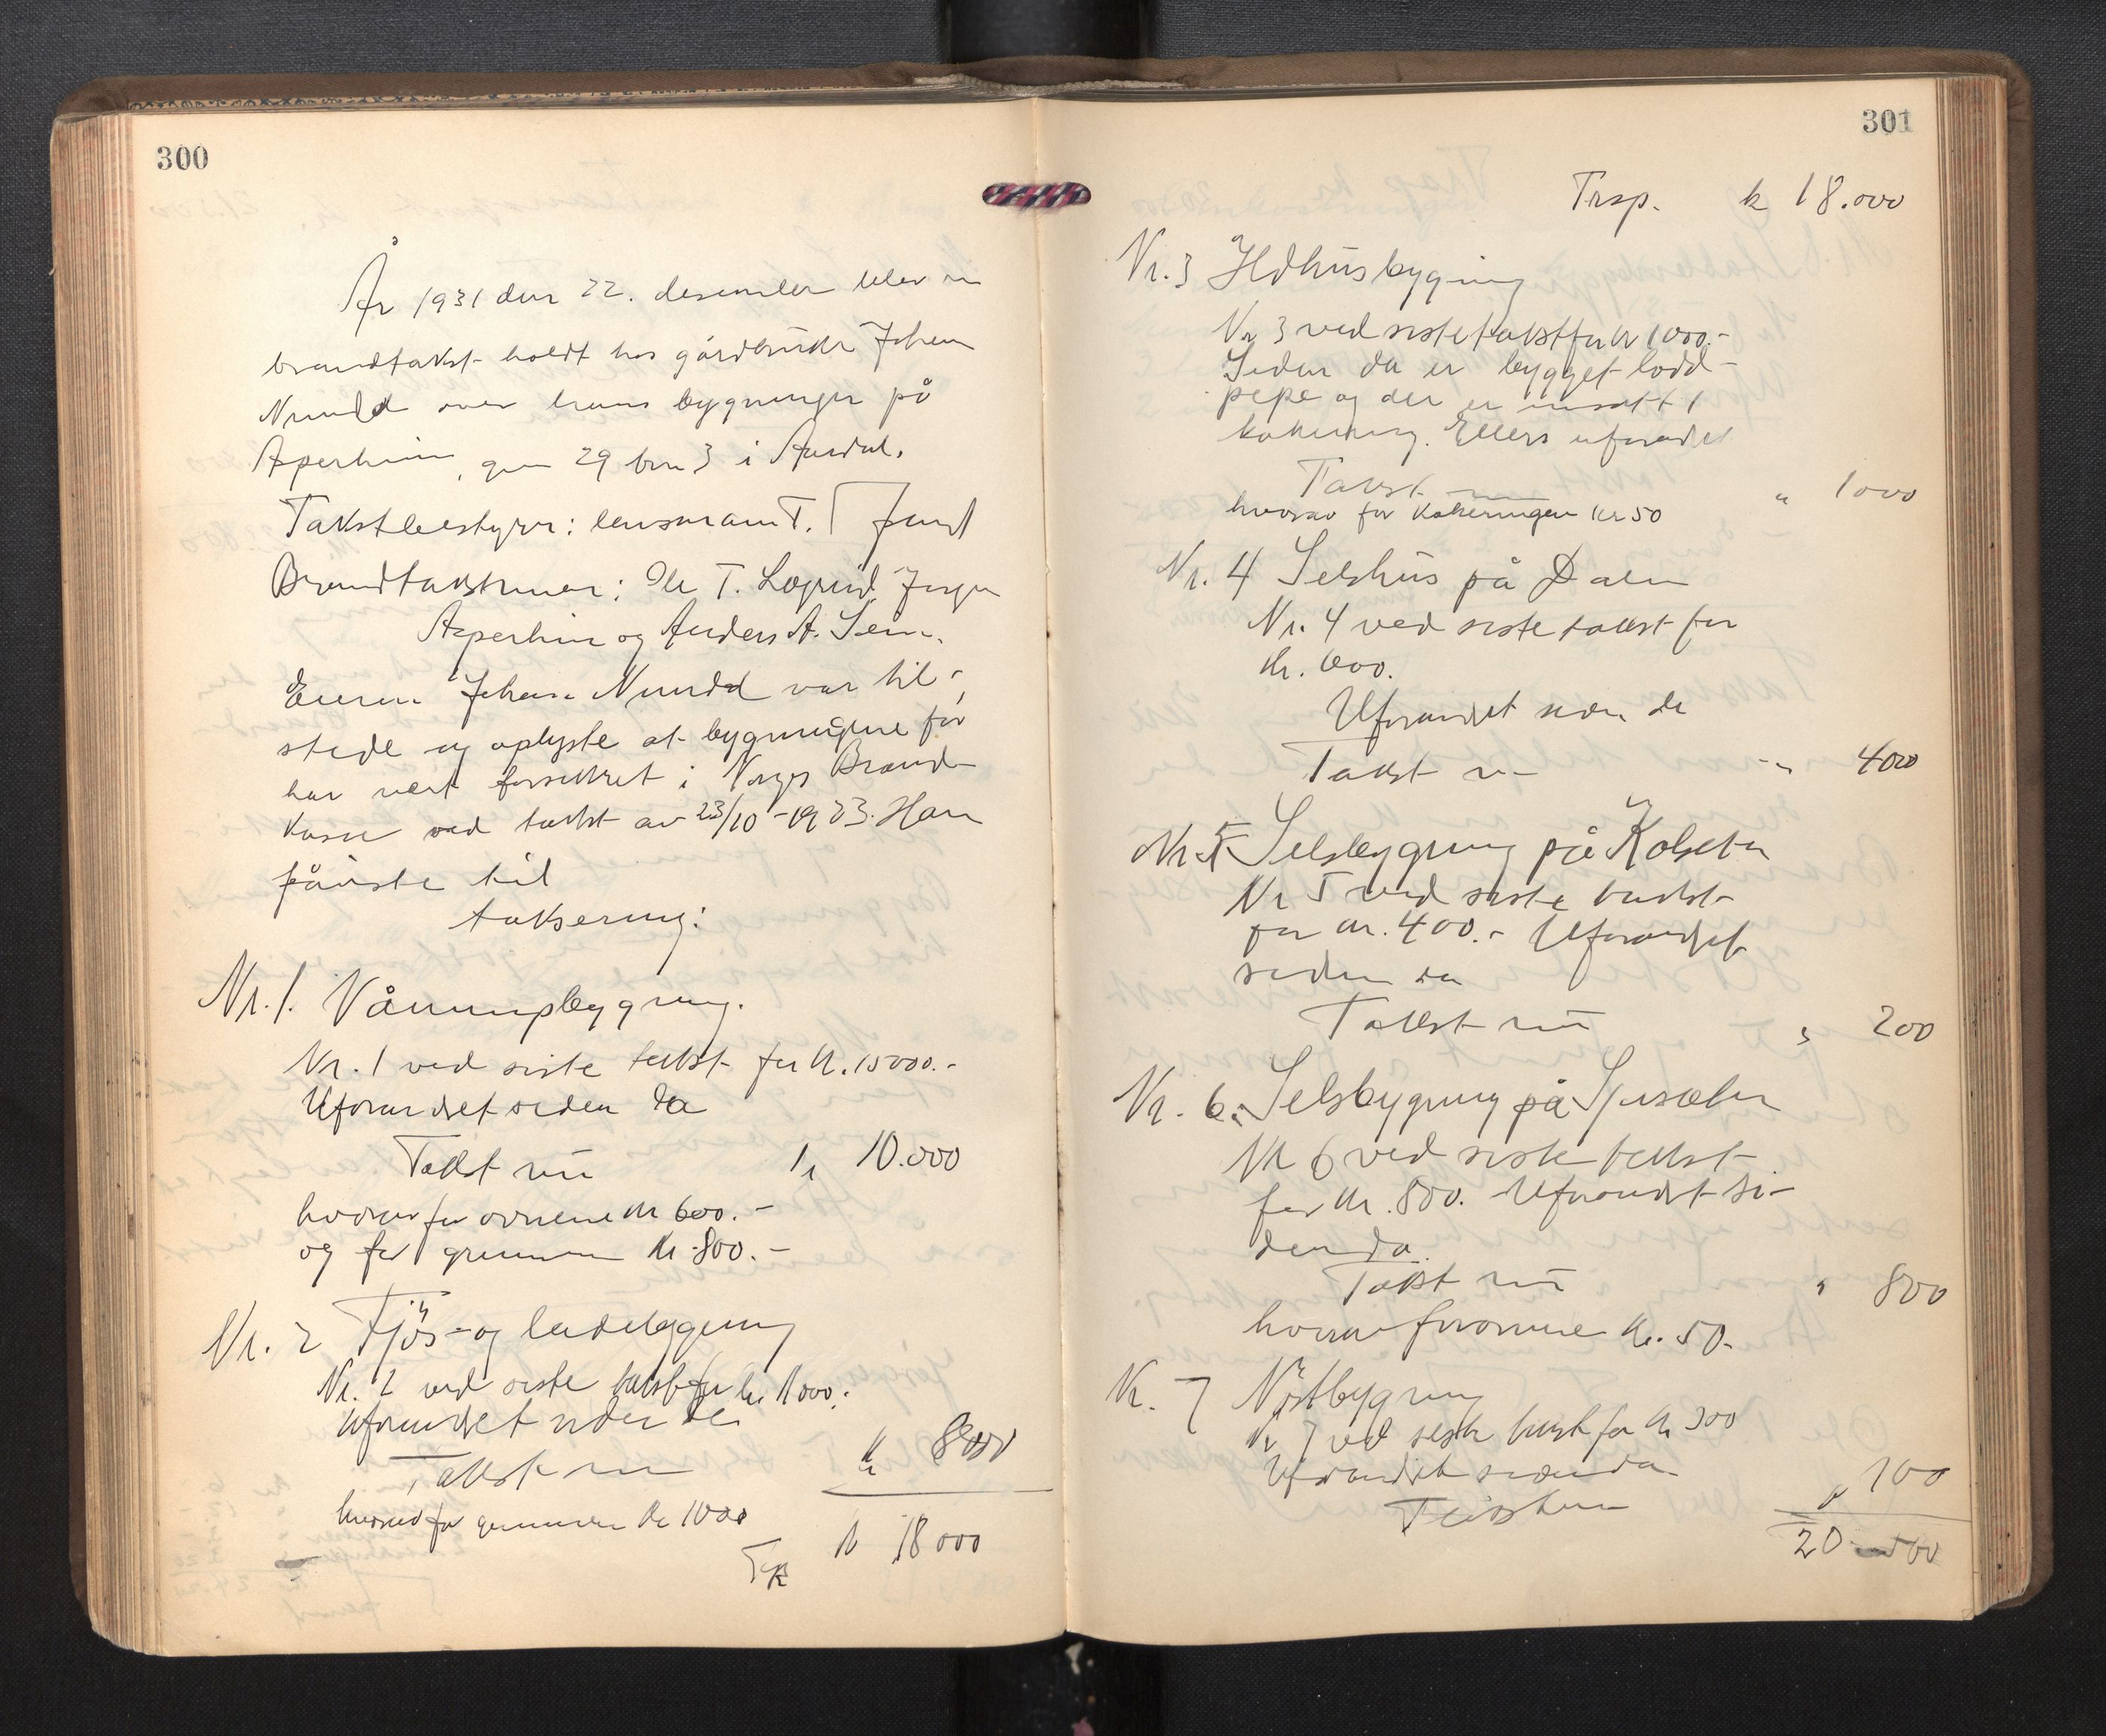 300
År 1931 den 22. desember blev en
brandtakst holdt hos gårdbruker Johan
Nundal over hans bygninger på
Asperheim, gnr 29 bnr 3 i Aurdal.
Takstbestyrer: lensmann T.
Brandtakstmenn: Ole T. Lægreid,
Asperheim og Anders A. Seim.
Eieren Johan Nundal var til-
stede og oplyste at bygningene før
har vært forsikret i Norges Brand-
kasse ved takst av 23/10-1923. Han
påviste til
taksering:
Nr. 1. Våningsbygning.
Nr. 1 ved siste takst for kr. 15000.-
Uforandret siden da
Takst nu kr 10.000
hvorav for ovnene kr 600.-
og for grunnmuren kr. 800.-
Nr. 2 Fjös- og ladebygning
Nr. 2 ved siste takst for kr. 11000.
Uforandret siden da
Takst nu kr 8000
hvorav for grunmuren kr 1000
kr 18000
301
Trsp. kr 18.000
Nr. 3 Ildhusbygning
Nr 3 ved siste takst for kr 1000.-
Siden da er bygget lodd-
pipe og der er innsatt 1
kokering. Ellers uforandret
Takst nu " 1000
hvorav for kokeringen kr 50
Nr. 4 Selshus på Dalen
Nr. 4 ved siste takst for
kr. 600.
Uforandret siden da
Takst nu " 400
Nr. 5 Selsbygning på Kolseter
Nr 5 ved siste takst
for kr. 400.- Uforandret
siden da
Takst nu " 200
Nr. 6. Selsbygning på
Nr 6 ved siste takst
for kr. 800. Uforandret si-
den da.
Takst nu " 800
hvorav for ovnene kr. 50.
Nr. 7 Nöstbygning
Nr 7 ved siste takst for kr 300
Uforandret siden da
Takst nu " 100
20 500